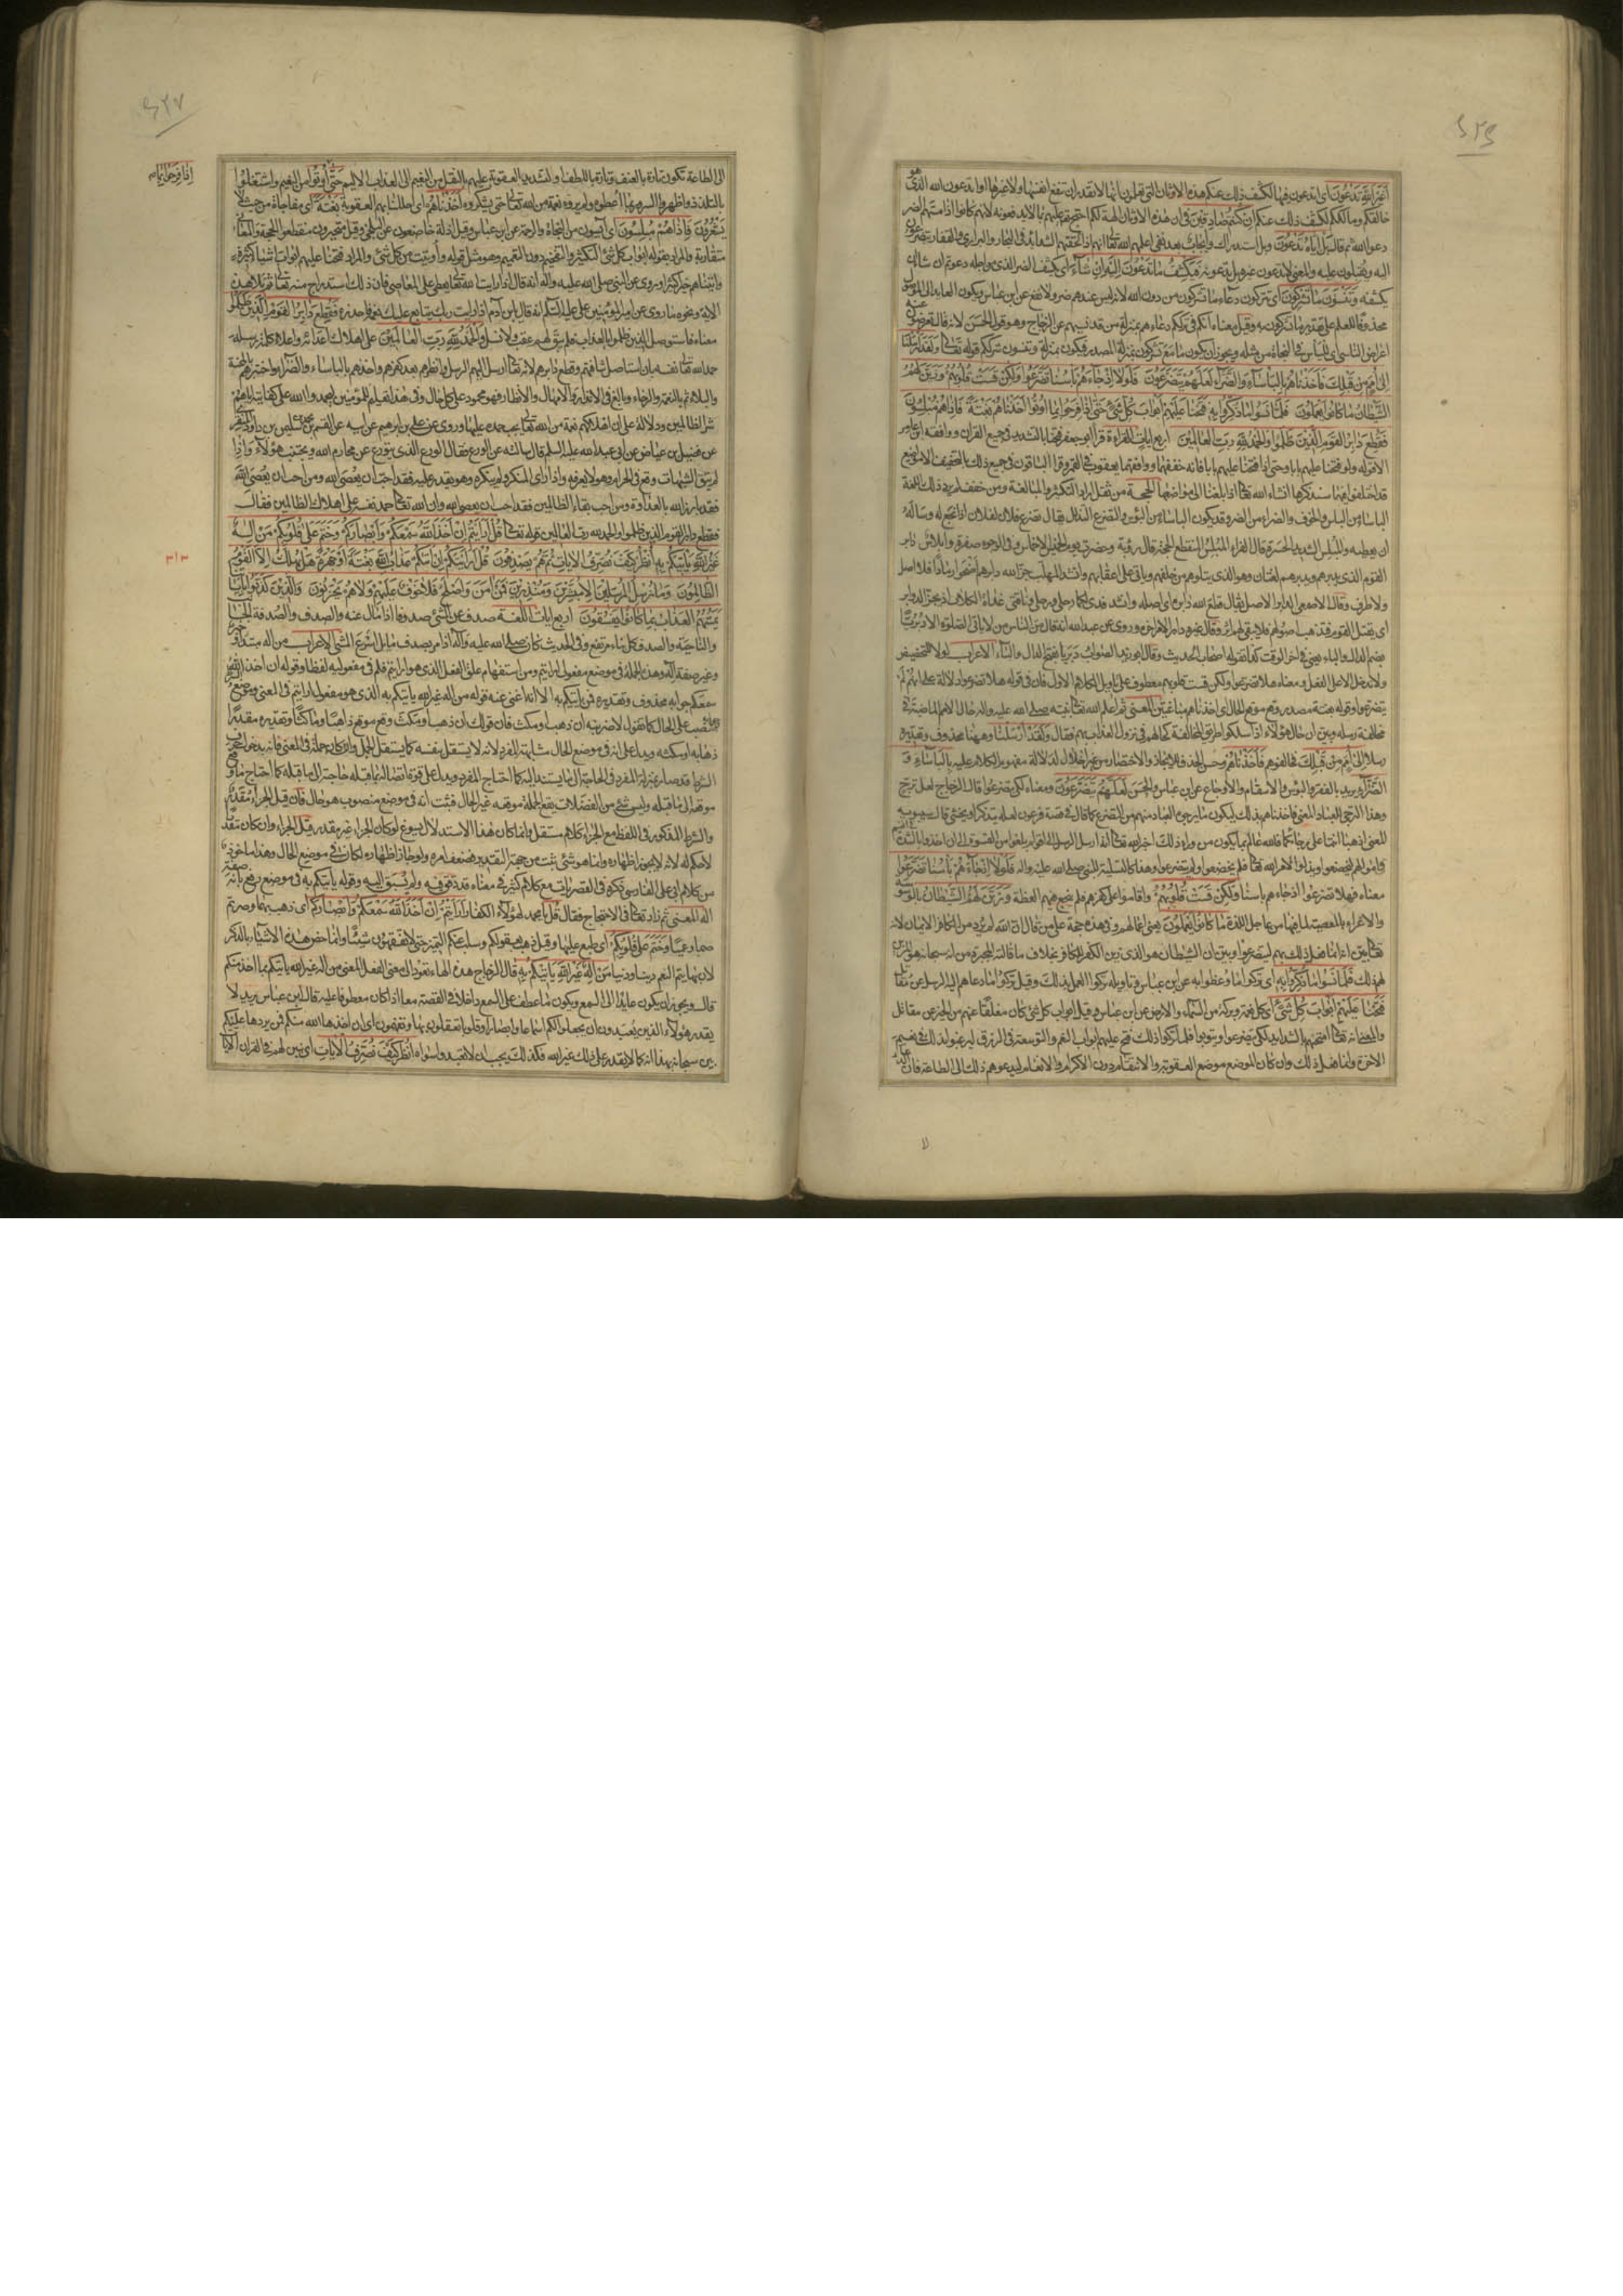 أغير الله تدعون اى تدعون فيها لكشف ذلك عنكم هذه الاوثان التى تعلمون انها لا تقدر ان تنفع انفسها ولا غيرها او تدعون الله الذى هو
خالقكم ومالككم لكشف ذلك عنكم ان كنتم صادقين فى ان هذه الاوثان الهة لكم احتج عليهم بما لا يدفعونه لانهم كانوا اذا مسهم الضر
دعوا الله ثم قال بل اياه تدعون وبل استدراك وايجاب بعد نفى اعلمهم الله تعالى انهم اذا لحقتهم الشدائد فى البحار والبرارى والقفار يتضرعون
اليه ويقبلون عليه والمعنى لا تدعون غيره بل تدعونه فيكشف ما تدعون اليه ان شاء اى يكشف الضر الذى من اجله دعوتم ان شاء ان
يكشفه وتنسون ما تشركون اى تتركون دعاء ما تشركون من دون الله لانه ليس عندهم ضر ولا نفع عن ابن عباس ويكون العايد الى الموصول
محذوفا للعلم على تقدير ما تشركون به وقيل معناه انكم فى ترككم دعاءهم بمنزلة من قد نسيهم عن الزجاج وهو قول الحسن لانه قال تعرضون عنه
اعراض الناسى اى لليأس فى النجاة من مثله ويجوز ان يكون ما مع تشركون بمنزلة المصدر فيكون بمنزلة وتنسون شرككم قوله تعالى ولقد ارسلنا
الى أمم من قبلك فاخذناهم بالبأساء والضراء لعلهم يتضرعون فلولا اذ جاءهم بأسنا تضرعوا ولكن قست قلوبهم وزين لهم
الشيطان ما كانوا يعملون فلما نسوا ما ذكروا به فتحنا عليهم ابواب كل شئ حتى اذا فرحوا بما اوتوا اخذناهم بغتة فاذا هم مبلسون
فقطع دابر القوم الذين ظلموا والحمد لله رب العالمين اربع ايات القراءة قرأ ابو جعفر فتحنا بالتشديد فى جميع القرآن ووافقه ابن عامر
الا قوله ولو فتحنا عليهم بابا وحتى اذا فتحنا عليهم بابا فانه خففهما ووافقهما يعقوب فى القمر وقرأ الباقون فى جميع ذلك بالتخفيف الا مواضع
قد اختلفوا فيها سنذكرها انشاء الله تعالى اذا بلغنا الى مواضعها الحجة من ثقل اراد التكثير والمبالغة ومن خفف لم يرد ذلك اللغة
البأساء من البأس والخوف والضراء من الضر وقد يكون البأساء من البؤس والتضرع التذلل يقال تضرع فلان لفلان اذا بخع له وسأله
ان يعطيه والمبلس الشديد الحسرة قال الفراء المبلس المنقطع الحجة قال رؤبة وحضرت يوم الخميس الاخماس وفى الوجوه صفرة وابلاس دابر
القوم الذى يدبرهم ويدبرهم لغتان وهو الذى يتلوهم من خلفهم وياتى على اعقابهم وانشد المهلب جز الله دابرهم
ولا طرف وقال الاصمعى الدابر الاصل يقال قطع الله دابره اى اصله وانشد فدى لكما رحلى ورحلى وناقتى غداة الكلاب اذ تجز الدوابر
اى يقتل القوم فتذهب اصولهم فلا يبقى لهم اثر وقال غيره دابر الامر اخره وروى عن عبد الله انه قال من الناس من لا ياتى الصلوة الا دبريا
بضم الدال والباء يعنى فى اخر الوقت كذا يقوله اصحاب الحديث وقال ابو زيد الصواب دبريا بفتح الدال والباء الاعراب لولا للتحضيض
ولا تدخل الا على الفعل ومعناه هلا تضرعوا ولكن قست قلوبهم معطوف على تاويل الكلام الاول فان فى قوله هلا تضرعوا دلالة على انهم لم
يتضرعوا وقوله بغتة مصدر وقع موقع الحال اى اخذناهم مباغتين المعنى ثم اعلم الله تعالى نبيه صلى الله عليه واله حال الامم الماضية فى
مخالفة رسله وبين ان حال هؤلاء اذا سلكوا طريق المخالفة كحالهم فى نزول العذاب بهم فقال ولقد ارسلنا وهيهنا محذوف وتقديره
رسلا الى أمم من قبلك فخالفوهم فاخذناهم وحسن الحذف للايجاز والاختصار من غير اخلال لدلالة مفهوم الكلام عليه بالبأساء و
الضراء يريد بالفقر والبؤس والاسقام والاوجاع عن ابن عباس والحسن لعلهم يتضرعون ومعناه لكى يتضرعوا قال الزجاج لعل ترج
وهذا الترجى للعباد المعنى فاخذناهم بذلك ليكون ما يرجوه العباد منهم من التضرع كما قال فى قصة فرعون لعله يتذكر او يخشى قال سيبويه
المعنى اذهبا انتما على رجائكما فالله عالم بما يكون من وراء ذلك اخبر الله تعالى انه ارسل الرسل الى اقوام بلغوا من القسوة الى ان اخذوا بالشدة
فى انفسهم واموالهم ليخضعوا ويذلوا لامر الله تعالى فلم يخضعوا ولم يتضرعوا وهذا كالتسلية للنبى صلى الله عليه واله فلولا اذ جاءهم بأسنا تضرعوا
معناه فهلا تضرعوا اذ جاءهم بأسنا ولكن قست قلوبهم واقاموا على كفرهم فلم ينجع فيهم العظة وزين لهم الشيطان بالوسوسة
والاغراء بالمعصية لما فيها من عاجل اللذة ما كانوا يعملون يعنى اعمالهم وفى هذه حجة على من قال ان الله لم يرد من الكافر الايمان لانه
تعالى بين انه انما فعل ذلك بهم ليتضرعوا وبين ان الشيطان هو الذى زين الكفر للكافر بخلاف ما قالته المجبرة من انه سبحانه هو المزين
لهم ذلك فلما نسوا ما ذكروا به اى تركوا ما وعظوا به عن ابن عباس وتاويله تركوا العمل بذلك وقيل تركوا ما دعاهم اليه الرسل عن مقاتل
فتحنا عليهم ابواب كل شئ اى كل نعمة وبركة من السماء والارض عن ابن عباس وقيل ابواب كل شئ كان مغلقا عنهم من الخير عن مقاتل
والمعنى انه تعالى امتحنهم بالشدايد لكى يتضرعوا ويتوبوا فلما تركوا ذلك فتح عليهم ابواب النعم والتوسعة فى الرزق ليرغبوا بذلك فى نعيم
الاخرة وانما فعل ذلك وان كان الموضع موضع العقوبة والانتقام دون الاكرام والانعام ليدعوهم ذلك الى الطاعة فان الدعاء
الى الطاعة تكون تارة بالعنف وتارة باللطف او لتشديد العقوبة عليهم بالنقل من النعيم الى العذاب الاليم حتى اوتوا من النعيم واشتغلوا
اذا فرحوا بما
بالتلذذ واظهروا السرور بما اعطوه ولم يروه نعمة من الله تعالى حتى يشكروه اخذناهم اى احللنا بهم العقوبة بغتة اى مفاجاة من حيث لا
يشعرون فاذا هم مبلسون اى آيسون من النجاة والرحمة عن ابن عباس وقيل اذلة خاضعون عن البلخى وقيل متحيرون منقطعوا الحجة والمعانى
متقاربة والمراد بقوله ابواب كل شئ التكثير والتفخيم دون التعميم وهو مثل قوله واوتيت من كل شئ والمراد فتحنا عليهم ابواب اشياء كثيرة
واتيناهم خيرا كثيرا وروى عن النبى صلى الله عليه واله انه قال اذا رايت الله تعالى يعطى على المعاصى فان ذلك استدراج منه تعالى ثم تلا هذه
الاية ونحوه ما روى عن امير المؤمنين على عليه السلام انه قال يابن آدم اذا رايت ربك يتابع عليك نعمه فاحذره فقطع دابر القوم الذين ظلموا
معناه فاستوصل الذين ظلموا بالعذاب فلم يبق لهم عقب ولا نسل والحمد لله رب العالمين على اهلاك اعدائه واعلاء كلمة رسله
حمد الله تعالى نفسه بان استاصل شافتهم وقطع دابرهم لانه تعالى ارسل اليهم الرسل وانظرهم بعد كفرهم واخذهم بالبأساء والضراء واختبرهم بالمحنة
والبلاء ثم بالنعمة والرخاء وبالغ فى الانذار والامهال والانظار فهو محمود على كل حال وفى هذا تعليم للمؤمنين ليحمدوا الله على كفايته اياهم
شر الظالمين ودلالة على ان اهلاكهم نعمة من الله تعالى يجب حمده عليها وروى عن على بن ابراهيم عن ابيه عن القسم بن محمد عن سليمن بن داود المنقرى
عن فضيل بن عياض عن ابى عبد الله عليه السلم قال سالته عن الورع فقال الورع الذى يتورع عن محارم الله ويجتنب هؤلاء واذا
لم يتق الشبهات وقع فى الحرام وهو لا يعرفه واذا راى المنكر ولم ينكره وهو يقدر عليه فقد احب ان يعصى الله ومن احب ان يعصى الله
فقد بارز الله بالعداوة ومن احب بقاء الظالمين فقد احب ان يعصى الله وان الله تعالى حمد نفسه على اهلاك الظالمين فقال
فقطع دابر القوم الذين ظلموا والحمد لله رب العالمين قوله تعالى قل أرايتم ان اخذ الله سمعكم وابصاركم وختم على قلوبكم من اله
غير الله ياتيكم به انظر كيف نصرف الايات ثم هم يصدفون قل ارايتكم ان اتيكم عذاب الله بغتة او جهرة هل يهلك الا القوم
الظالمون وما نرسل المرسلين الا مبشرين ومنذرين فمن آمن واصلح فلا خوف عليهم ولا هم يحزنون والذين كذبوا باياتنا
يمسهم العذاب بما كانوا يفسقون اربع ايات اللغة صدف عن الشئ صدوفا اذا مال عنه والصدف والصدفة الجانب
والناحية والصدف كل بناء مرتفع وفى الحديث كان صلى الله عليه واله اذا مر بصدف مايل اسرع المشى الاعراب من اله مبتدأ وخبر
وغير صفة اله وهذه الجملة فى موضع مفعول ارايتم ومن استفهام علق الفعل الذى هو ارايتم فلم فى مفعوليه لفظا وقوله ان اخذ الله
سمعكم جوابه محذوف وتقديره فمن ياتيكم به الا انه اغنى عنه قوله من اله غير الله ياتيكم به الذى هو مفعول ارايتم فى المعنى وموضعه
نصب على الحال كما تقول لاضربنه ان ذهب او مكث فان قولك ان ذهب او مكث وقع موقع ذاهبا وماكثا وتقديره مقدرا
ذهابه او مكثه ويدل على انه فى موضع الحال مشابهته للمفرد لانه لا يستقل بنفسه كما يستقل الجمل وان كان جملة فى المعنى فانه بدخول حرف
الشرط قد صار بمنزلة المفرد فى الحاجة الى ما يستند اليه كما احتاج المفرد ويدل على قوة اتصاله بما قبله حاجته الى ما قبله كما احتاج ما وقع
موقعه الى ما قبله وليس شئ من الفضلات يقع الجملة موقعه غير الحال فثبت انه فى موضع منصوب هو حال فان قيل الجزاء مقدر
والشرط المذكور فى اللفظ مع الجزاء كلام مستقل وانما كان هذا الاستدلال يسوغ لو كان الجزاء غير مقدر قيل الجزاء وان كان مقدرا
لا حكم له لانه لا يجوز اظهاره وانما هو شئ يثبت من جهة التقدير فضعف امره ولو جاز اظهاره لما كان فى موضع الحال وهذا ماخوذ
من كلام ابى على الفارسى ذكره فى القصريات مع كلام كثير فى معناه قد دقق فيه ولم يسبق اليه وقوله ياتيكم به فى موضع رفع بانه صفة
اله المعنى ثم زاد تعالى فى الاحتجاج فقال قل يا محمد لهؤلاء الكفار ارايتم ان اخذ الله سمعكم وابصاركم اى ذهب بهما وصرتم
صما وعميا وختم على قلوبكم اى طبع عليها وقيل ذهب بعقولكم وسلب عنكم التمييز حتى لا تفقهون شيئا وانما خص هذه الاشياء بالذكر
لان بها يتم النعم دينا ودنيا من اله غير الله ياتيكم به قال الزجاج هذه الهاء تعود الى معنى الفعل المعنى من اله غير الله ياتيكم بما اخذ منكم
قال ويجوز ان يكون عايدا الى السمع ويكون ما عطف على السمع داخلا فى القصة معه اذا كان معطوفا عليه قال ابن عباس يريد لا
يقدر هؤلاء الذين يعبدون ان يجعلوا لكم اسماعا وابصارا وقلوبا تعقلون بها وتفهمون اى ان اخذها الله منكم فمن يردها عليكم
بين سبحانه بهذا انه كما لا يقدر على ذلك غير الله فكذلك يجب ان لا تعبدوا سواه انظر كيف نصرف الايات اى نبين لهم فى القرآن الايات